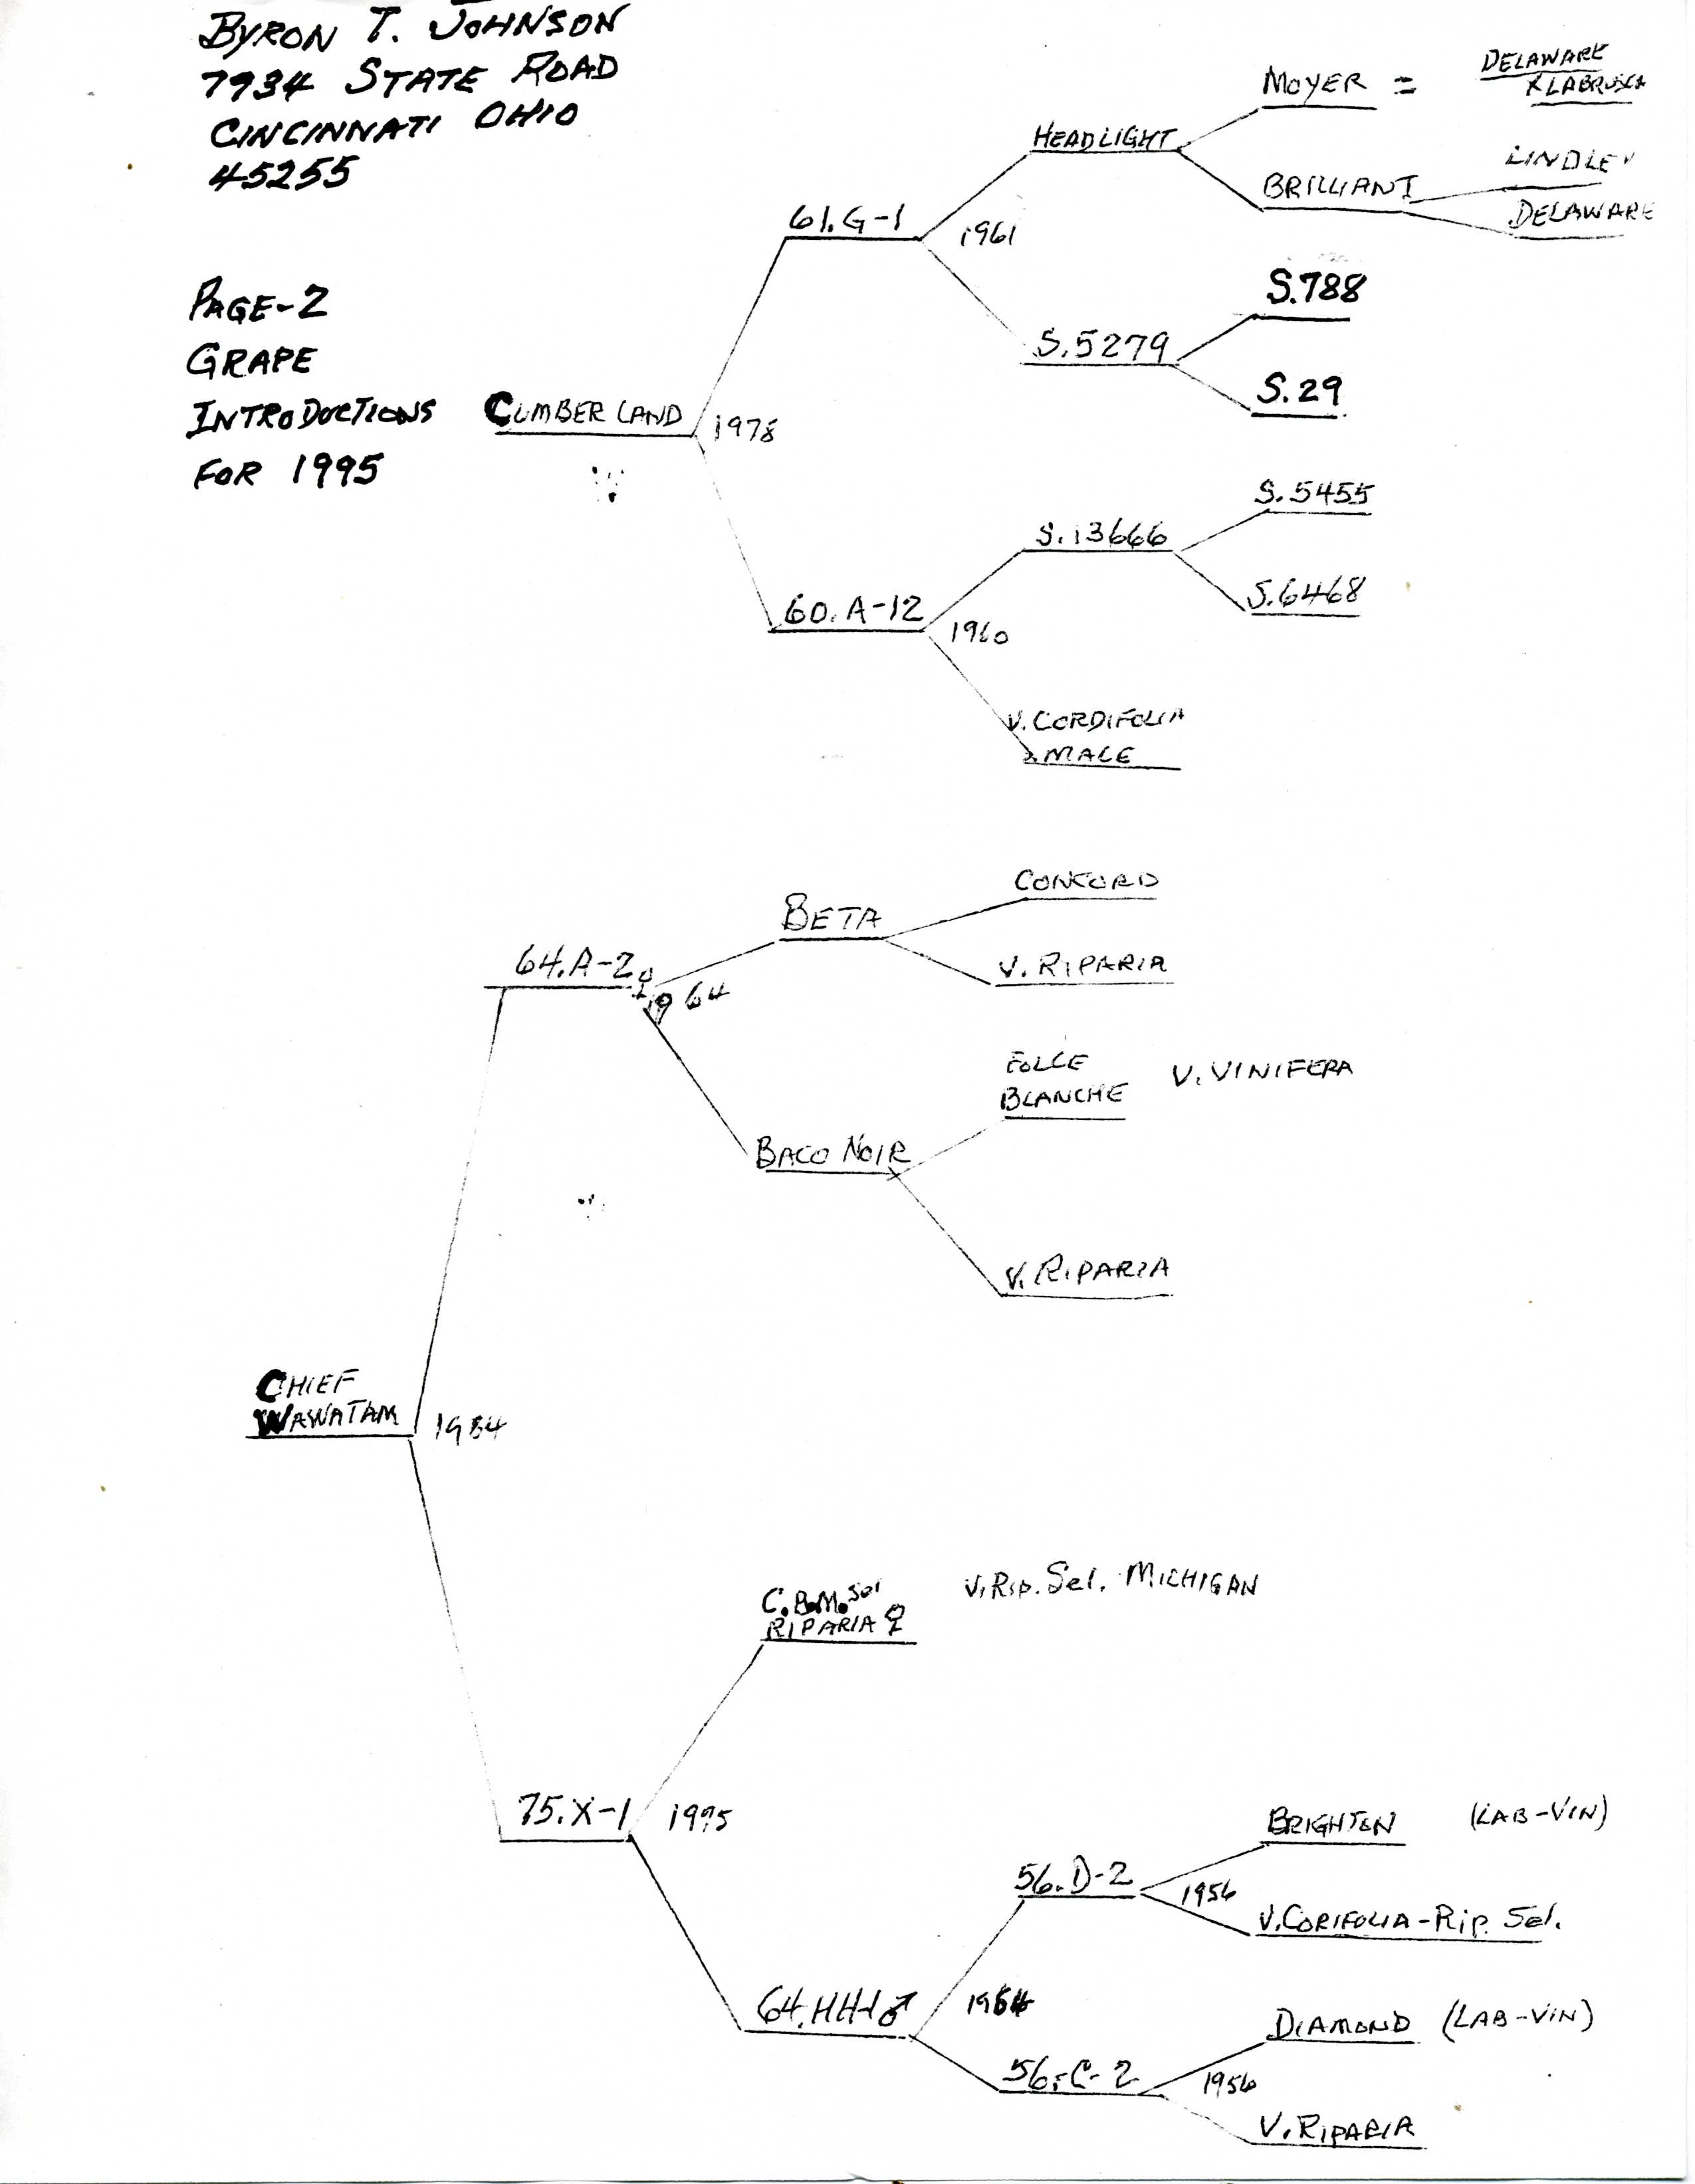 BYRON T. JOHNSON
7934 STATE ROAD
CINCINNATI OHIO
45255
PAGE-2
GRAPE
INTRODUCTIONS
FOR 1995
CUMBERLAND
1978
61.G-1
1961
HEADLIGHT
MOYER =
DELAWARE
X LABRUSCA
BRILLIANT
LINDLEY
DELAWARE
S.5279
S.788
S.29
60.A-12
1960
S.13666
S.5455
S.6468
V. CORDIFOLIA
MALE
CHIEF
WAWATAM
1984
64.A-2♀
1964
BETA
CONCORD
V. RIPARIA
BACO NOIR
FOLLE
BLANCHE
V. VINIFERA
V. RIPARIA
75.X-1
1975
C.B.M. Sel
RIPARIA ♀
V. Rip. Sel. MICHIGAN
64.HH-1♂
1964
56.D-2
1956
BRIGHTEN
(LAB-VIN)
V. CORIFOLIA-Rip. Sel.
56.C-2
1956
DIAMOND
(LAB-VIN)
V. RIPARIA